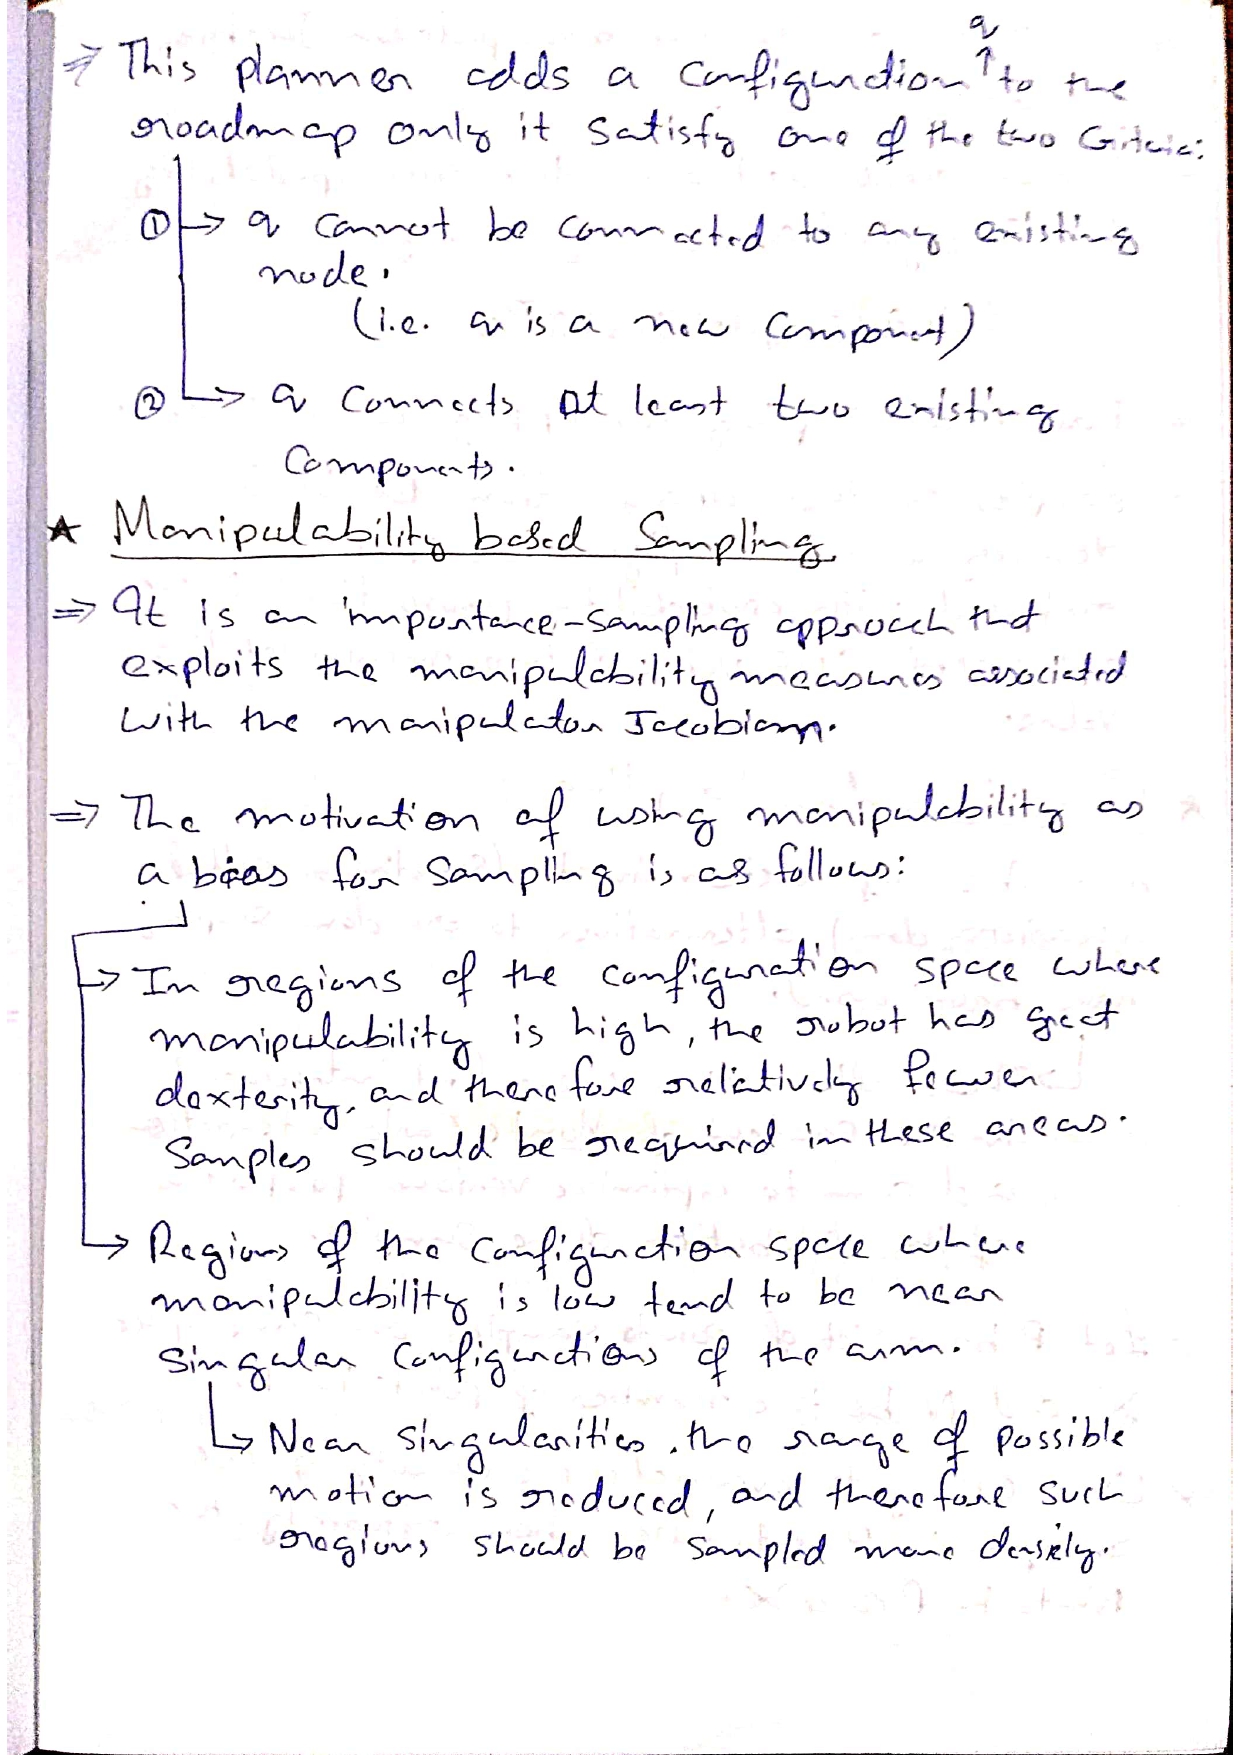 q
⇒ This planner adds a configuration ↑ to the
roadmap only it satisfy one of the two Criteria:
① → q cannot be connected to any existing
node.
(i.e. q is a new component)
② → q connects at least two existing
components.
★ Manipulability based Sampling
⇒ It is an importance-sampling approach that
exploits the manipulability measures associated
with the manipulator Jacobian.
⇒ The motivation of using manipulability as
a bias for sampling is as follows:
→ In regions of the configuration space where
manipulability is high, the robot has great
dexterity, and therefore relatively fewer
samples should be required in these areas.
→ Regions of the configuration space where
manipulability is low tend to be near
singular configurations of the arm.
↳ Near singularities, the range of possible
motion is reduced, and therefore such
regions should be sampled more densely.